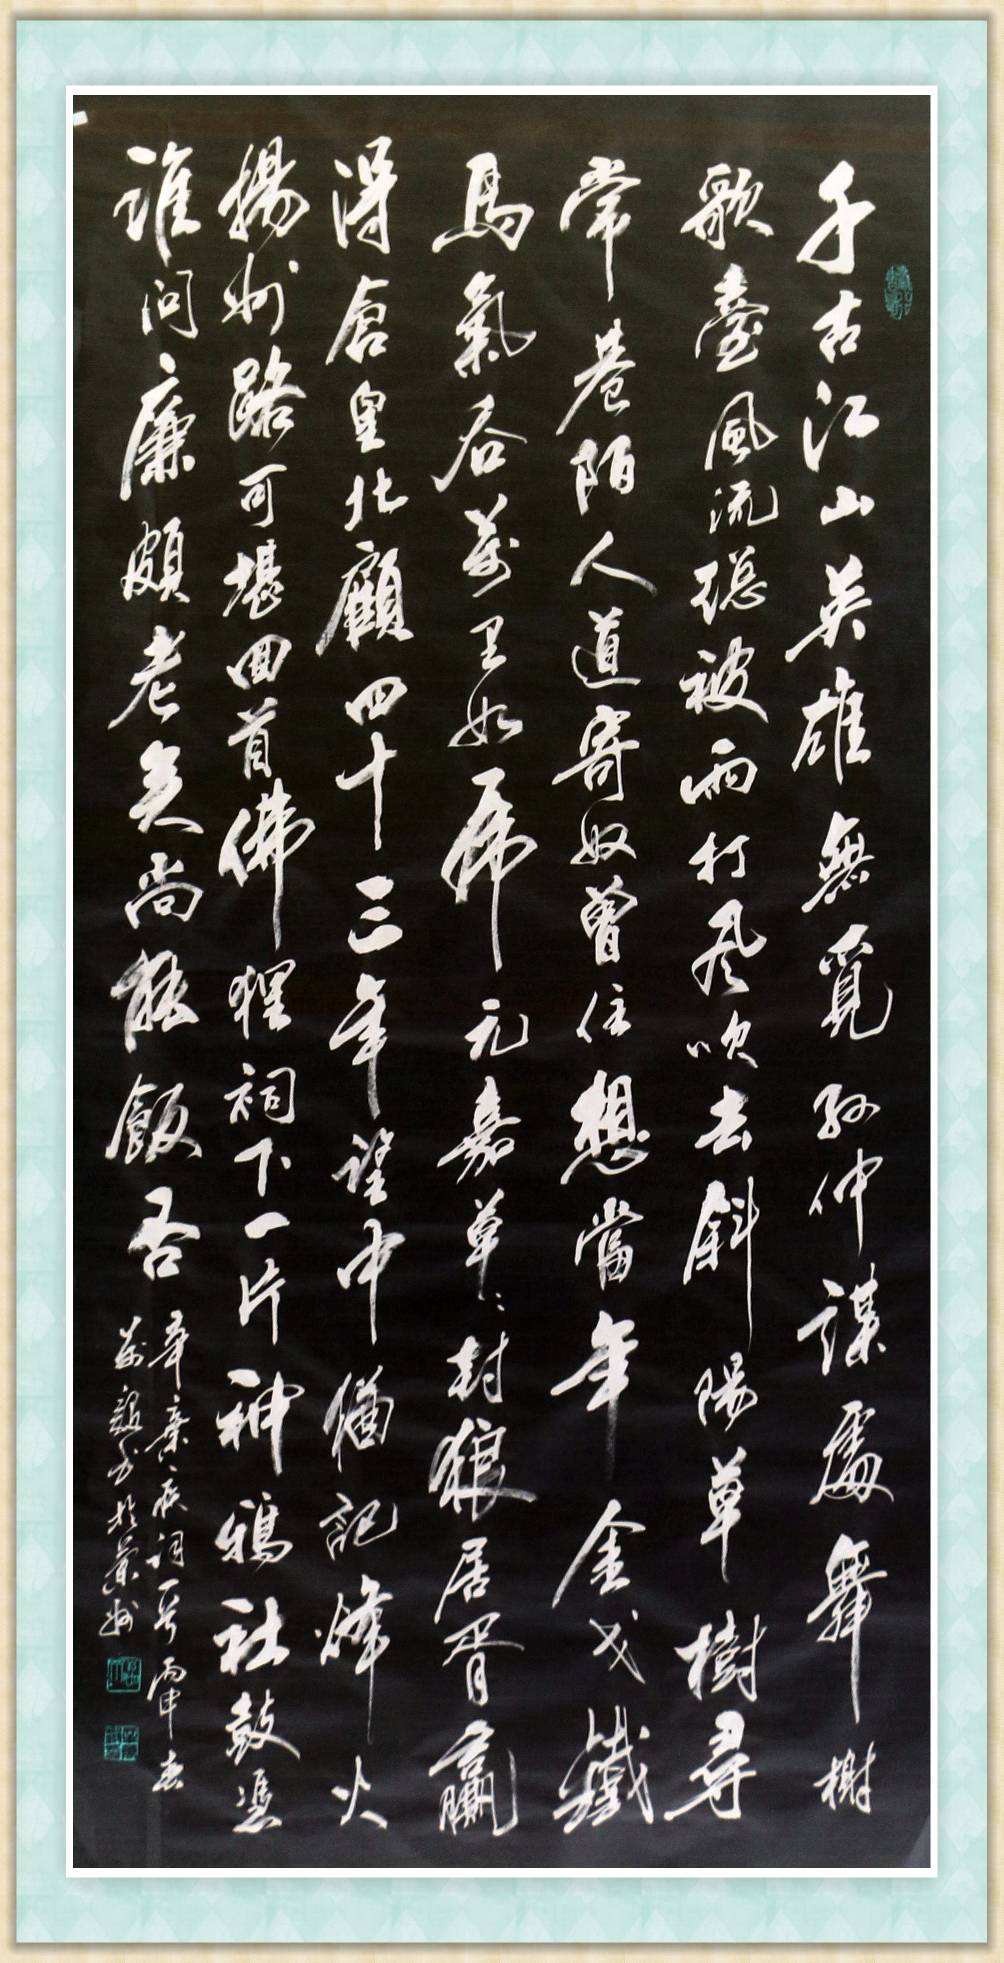 千古江山英雄無覓孫仲謀處舞榭
歌臺風流總被雨打風吹去斜陽草樹尋
常巷陌人道寄奴曾住想當年金戈鐵
馬氣吞萬里如虎元嘉草草封狼居胥贏
得倉皇北顧四十三年望中猶記烽火
揚州路可堪回首佛狸祠下一片神鴉社鼓憑
誰問廉頗老矣尚能飯否
辛棄疾詞一首丙申春
書於蘭州